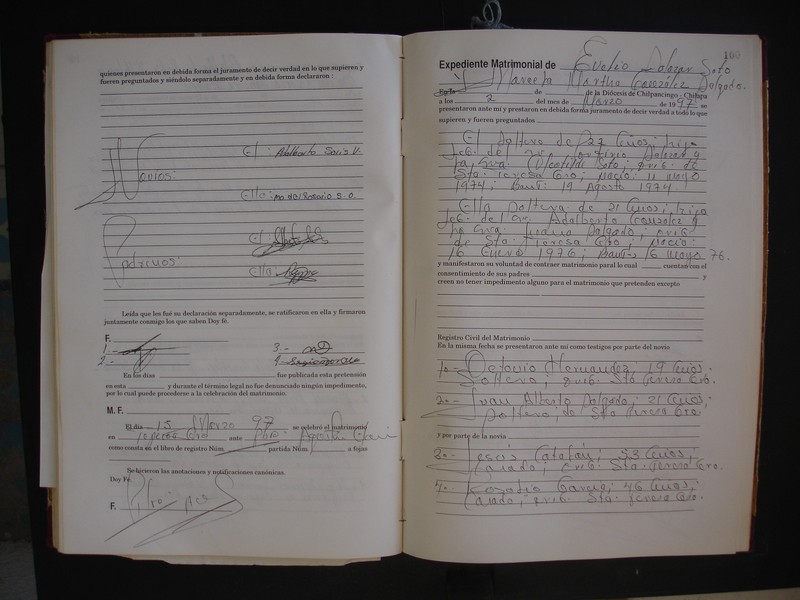 quienes presentaron en debida forma el juramento de decir verdad en lo que supieren y
fueren preguntados y siéndole separadamente y en debida forma declararon :
Novios:
El: Adalberto Solis V.
Ella: M del Rosario S. O.
Padrinos:
El
Ella
Leída que les fué su declaración separadamente, se ratificaron en ella y firmaron
juntamente conmigo los que saben Doy fe.
F.
1 -
3 -
2 -
4
En los días fue publicada esta pretensión
en esta y durante el término legal no fue denunciado ningún impedimento,
por lo cual puede procederse a la celebración del matrimonio.
M. F.
El día 15 Marzo 97 se celebró el matrimonio
en Teresa Gro ante Pbro. Agustín
como consta en el libro de registro Núm. partida Núm. a fojas
Se hicieron las anotaciones y notificaciones canónicas.
Doy Fe.
F.
100
Expediente Matrimonial de Evelio Salazar Soto
y Marcela Martha González Delgado.
En la de de la Diócesis de Chilpancingo - Chilapa
a los 2 del mes de Marzo de 1997 se
presentaron ante mí y prestaron en debida forma juramento de decir verdad a todo lo que
supieren y fueren preguntados
El Soltero de 22 Años; hijo
leg. de Sr. Antonio Salazar y
la Sra. Cleotilde Soto; orig. de
Sta. Teresa Gro; Nació: 11 Mayo
1974; Baut: 19 Agosto 1974
Ella Soltera de 21 Años; hija
leg. de Sr. Adalberto González y
la Sra. María Delgado; orig
de Sta. Teresa Gro; Nació:
16 Enero 1976; Baut: 16 Mayo 76.
y manifestaron su voluntad de contraer matrimonio para lo cual cuentan con el
consentimiento de sus padres y
creen no tener impedimento alguno para el matrimonio que pretenden excepto
Registro Civil del Matrimonio
En la misma fecha se presentaron ante mi como testigos por parte del novio
1.- Octavio Hernandez, 19 Años.
Soltero; orig. Sta Teresa Gro.
2.- Juan Alberto Delgado; 21 Años;
Soltero; de Sta Teresa Gro
y por parte de la novia
3.- Jesús Catalán; 53 Años,
Casado; orig. Sta. Teresa Gro.
4.- García; 46 Años;
Casado; orig. Sta. Teresa Gro.